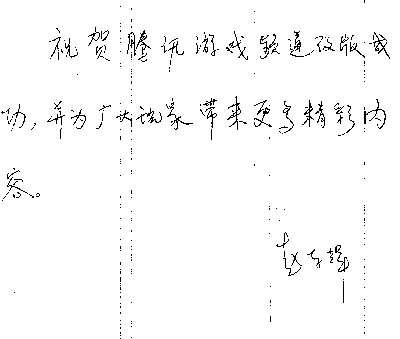 祝贺腾讯游戏频道改版成
功，并为广大玩家带来更多精彩内
容。